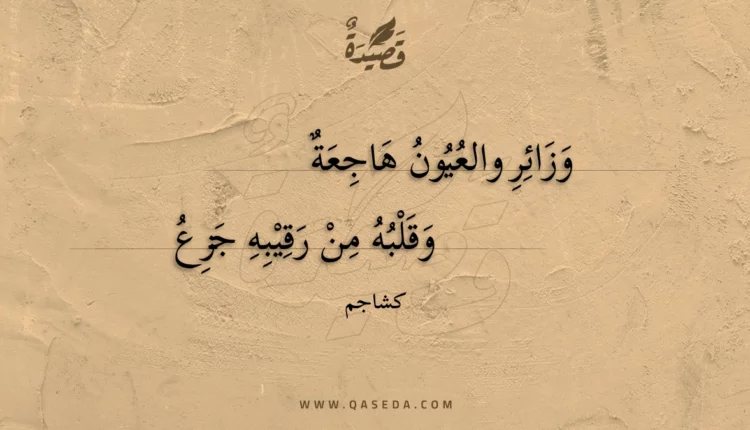 قَصِيْدَةٌ
وَزَائِرِ والعُيُونُ هَاجِعَةٌ
وَقَلْبُهُ مِنْ رَقِيْبِهِ جَزِعُ
كشاجم
WWW.QASEDA.COM